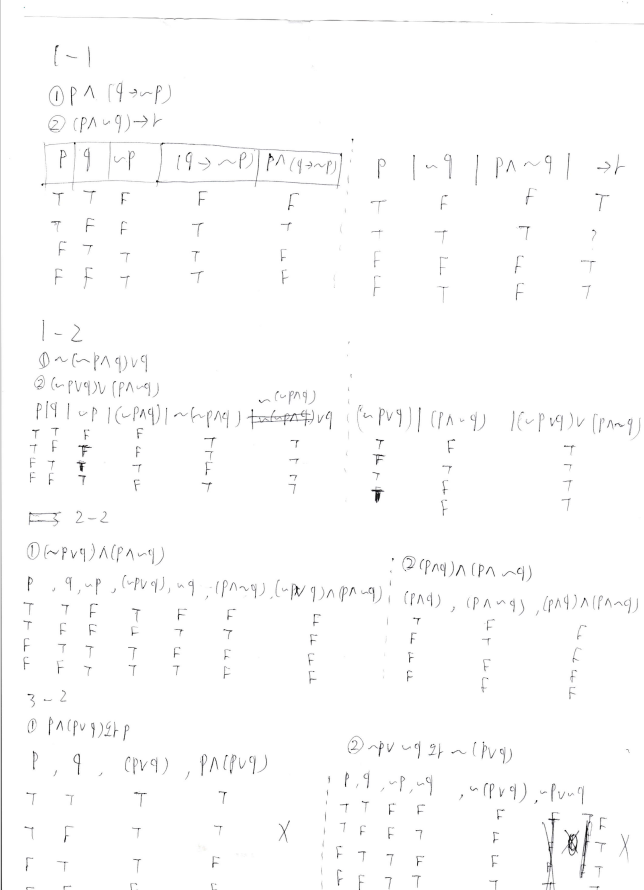 1-1
① p∧(q→~p)
② (p∧~q)→r
p | q | ~p | (q→~p) | p∧(q→~p)
T T F F F
T F F T T
F T T T F
F F T T F
p | ~q | p∧~q | →r
T F F T
T T T ?
F F F T
F T F T
1-2
① ~(~p∧q)∨q
② (~p∨q)∨(p∧~q)
~(~p∧q)
p | q | ~p | (~p∧q) | ~(~p∧q) ∨q
T T F F T T
T F F F T T
F T T T F T
F F T F T T
(~p∨q) | (p∧~q) | (~p∨q)∨(p∧~q)
T F T
F T T
T F T
T F T
2-2
① (~p∨q)∧(p∧~q)
p , q , ~p , (~p∨q) , ~q , (p∧~q) , (~p∨q)∧(p∧~q)
T T F T F F F
T F F F T T F
F T T T F F F
F F T T T F F
② (p∧q)∧(p∧~q)
(p∧q) , (p∧~q) , (p∧q)∧(p∧~q)
T F F
F T F
F F F
F F F
3-2
① p∧(p∨q)와 p
p , q , (p∨q) , p∧(p∨q)
T T T T
T F T T X
F T T F
F F F F
② ~p∨~q 와 ~(p∨q)
p , q , ~p , ~q , ~(p∨q) , ~p∨~q
T T F F F F
T F F T F T X
F T T F F T
F F T T T